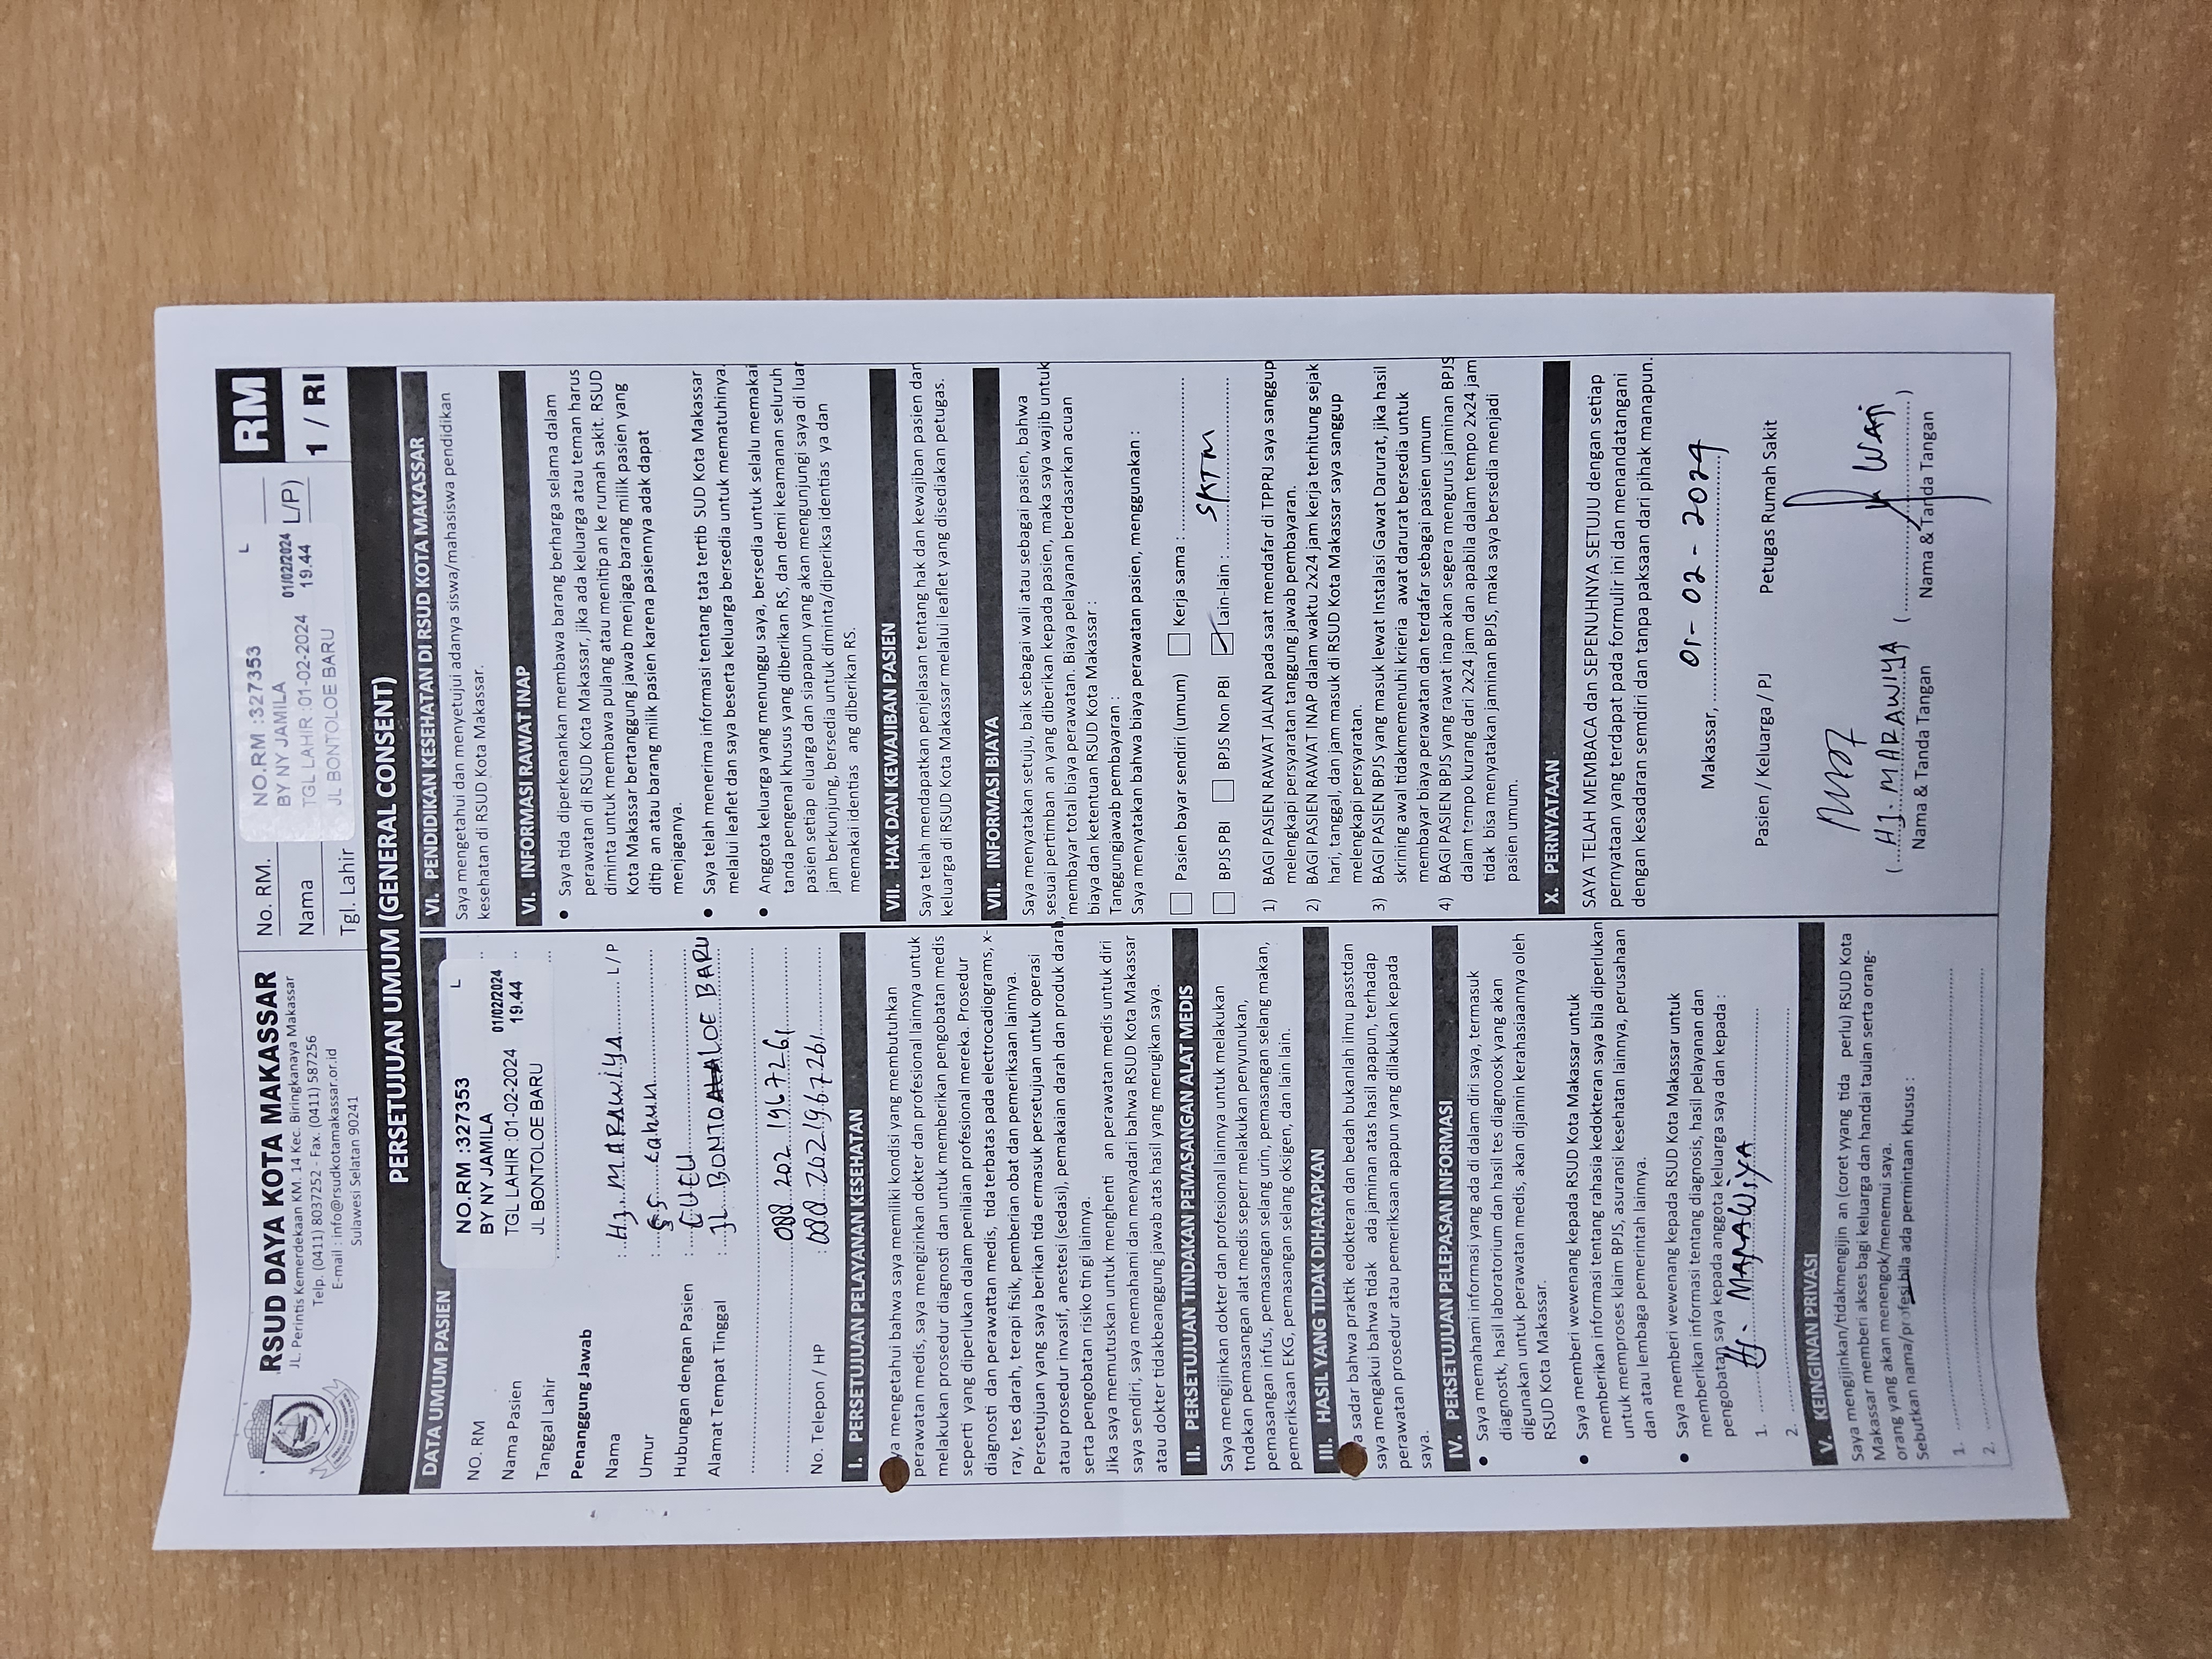 RSUD DAYA KOTA MAKASSAR
JL. Perintis Kemerdekaan KM. 14 Kec. Biringkanaya Makassar
Telp. (0411) 8037252 - Fax. (0411) 587256
E-mail : info@rsudkotamakassar.or.id
Sulawesi Selatan 90241
No. RM.
Nama
Tgl. Lahir
NO.RM :327353 L
BY NY JAMILA
TGL LAHIR :01-02-2024 01/02/2024 19.44
JL BONTOLOE BARU
L/P)
RM
1 / RI
PERSETUJUAN UMUM (GENERAL CONSENT)
DATA UMUM PASIEN
NO. RM
Nama Pasien
Tanggal Lahir
NO.RM :327353 L
BY NY JAMILA
TGL LAHIR :01-02-2024 01/02/2024 19.44
JL BONTOLOE BARU
Penanggung Jawab
Nama : Hj. MARAWIYA L / P
Umur : 55 tahun
Hubungan dengan Pasien : CUCU
Alamat Tempat Tinggal : JL BONTOALOE BARU
088 202 1967261
No. Telepon / HP : 088 2021967261
I. PERSETUJUAN PELAYANAN KESEHATAN
ya mengetahui bahwa saya memiliki kondisi yang membutuhkan
perawatan medis, saya mengizinkan dokter dan profesional lainnya untuk
melakukan prosedur diagnosti dan untuk memberikan pengobatan medis
seperti yang diperlukan dalam penilaian profesional mereka. Prosedur
diagnosti dan perawattan medis, tida terbatas pada electrocadiograms, x-
ray, tes darah, terapi fisik, pemberian obat dan pemeriksaan lainnya.
Persetujuan yang saya berikan tida ermasuk persetujuan untuk operasi
atau prosedur invasif, anestesi (sedasi), pemakaian darah dan produk darah,
serta pengobatan risiko tin gi lainnya.
Jika saya memutuskan untuk menghenti an perawatan medis untuk diri
saya sendiri, saya memahami dan menyadari bahwa RSUD Kota Makassar
atau dokter tidakbeanggung jawab atas hasil yang merugikan saya.
II. PERSETUJUAN TINDAKAN PEMASANGAN ALAT MEDIS
Saya mengijinkan dokter dan profesional lainnya untuk melakukan
tndakan pemasangan alat medis seperr melakukan penyunukan,
pemasangan infus, pemasangan selang urin, pemasangan selang makan,
pemeriksaan EKG, pemasangan selang oksigen, dan lain lain.
III. HASIL YANG TIDAK DIHARAPKAN
a sadar bahwa praktik edokteran dan bedah bukanlah ilmu passtdan
saya mengakui bahwa tidak ada jaminan atas hasil apapun, terhadap
perawatan prosedur atau pemeriksaan apapun yang dilakukan kepada
saya.
IV. PERSETUJUAN PELEPASAN INFORMASI
• Saya memahami informasi yang ada di dalam diri saya, termasuk
diagnostk, hasil laboratorium dan hasil tes diagnoosk yang akan
digunakan untuk perawatan medis, akan dijamin kerahasiaannya oleh
RSUD Kota Makassar.
• Saya memberi wewenang kepada RSUD Kota Makassar untuk
memberikan informasi tentang rahasia kedokteran saya bila diperlukan
untuk memproses klaim BPJS, asuransi kesehatan lainnya, perusahaan
dan atau lembaga pemerintah lainnya.
• Saya memberi wewenang kepada RSUD Kota Makassar untuk
memberikan informasi tentang diagnosis, hasil pelayanan dan
pengobatan saya kepada anggota keluarga saya dan kepada :
1. Hj. MARAWIYA
2.
V. KEINGINAN PRIVASI
Saya mengijinkan/tidakmengijin an (coret yyang tida perlu) RSUD Kota
Makassar memberi akses bagi keluarga dan handai taulan serta orang-
orang yang akan menengok/menemui saya.
Sebutkan nama/profesi bila ada permintaan khusus :
1.
2.
VI. PENDIDIKAN KESEHATAN DI RSUD KOTA MAKASSAR
Saya mengetahui dan menyetujui adanya siswa/mahasiswa pendidikan
kesehatan di RSUD Kota Makassar.
VI. INFORMASI RAWAT INAP
• Saya tida diperkenankan membawa barang berharga selama dalam
perawatan di RSUD Kota Makassar, jika ada keluarga atau teman harus
diminta untuk membawa pulang atau menitip an ke rumah sakit. RSUD
Kota Makassar bertanggung jawab menjaga barang milik pasien yang
ditip an atau barang milik pasien karena pasiennya adak dapat
menjaganya.
• Saya telah menerima informasi tentang tata tertib SUD Kota Makassar
melalui leaflet dan saya beserta keluarga bersedia untuk mematuhinya.
• Anggota keluarga yang menunggu saya, bersedia untuk selalu memakai
tanda pengenal khusus yang diberikan RS, dan demi keamanan seluruh
pasien setiap eluarga dan siapapun yang akan mengunjungi saya di luar
jam berkunjung, bersedia untuk diminta/diperiksa identias ya dan
memakai identias ang diberikan RS.
VII. HAK DAN KEWAJIBAN PASIEN
Saya telah mendapatkan penjelasan tentang hak dan kewajiban pasien dan
keluarga di RSUD Kota Makassar melalui leaflet yang disediakan petugas.
VII. INFORMASI BIAYA
Saya menyatakan setuju, baik sebagai wali atau sebagai pasien, bahwa
sesuai pertimban an yang diberikan kepada pasien, maka saya wajib untuk
membayar total biaya perawatan. Biaya pelayanan berdasarkan acuan
biaya dan ketentuan RSUD Kota Makassar :
Tanggungjawab pembayaran :
Saya menyatakan bahwa biaya perawatan pasien, menggunakan :
Pasien bayar sendiri (umum) Kerja sama :
BPJS PBI BPJS Non PBI Lain-lain : SKTM
1) BAGI PASIEN RAWAT JALAN pada saat mendafar di TPPRJ saya sanggup
melengkapi persyaratan tanggung jawab pembayaran.
2) BAGI PASIEN RAWAT INAP dalam waktu 2x24 jam kerja terhitung sejak
hari, tanggal, dan jam masuk di RSUD Kota Makassar saya sanggup
melengkapi persyaratan.
3) BAGI PASIEN BPJS yang masuk lewat Instalasi Gawat Darurat, jika hasil
skrining awal tidakmemenuhi krieria awat darurat bersedia untuk
membayar biaya perawatan dan terdafar sebagai pasien umum
4) BAGI PASIEN BPJS yang rawat inap akan segera mengurus jaminan BPJS
dalam tempo kurang dari 2x24 jam dan apabila dalam tempo 2x24 jam
tidak bisa menyatakan jaminan BPJS, maka saya bersedia menjadi
pasien umum.
X. PERNYATAAN
SAYA TELAH MEMBACA dan SEPENUHNYA SETUJU dengan setiap
pernyataan yang terdapat pada formulir ini dan menandatangani
dengan kesadaran semdiri dan tanpa paksaan dari pihak manapun.
Makassar, 01-02-2024
Pasien / Keluarga / PJ Petugas Rumah Sakit
( HJ. MARAWIYA ( )
Nama & Tanda Tangan Nama & Tanda Tangan